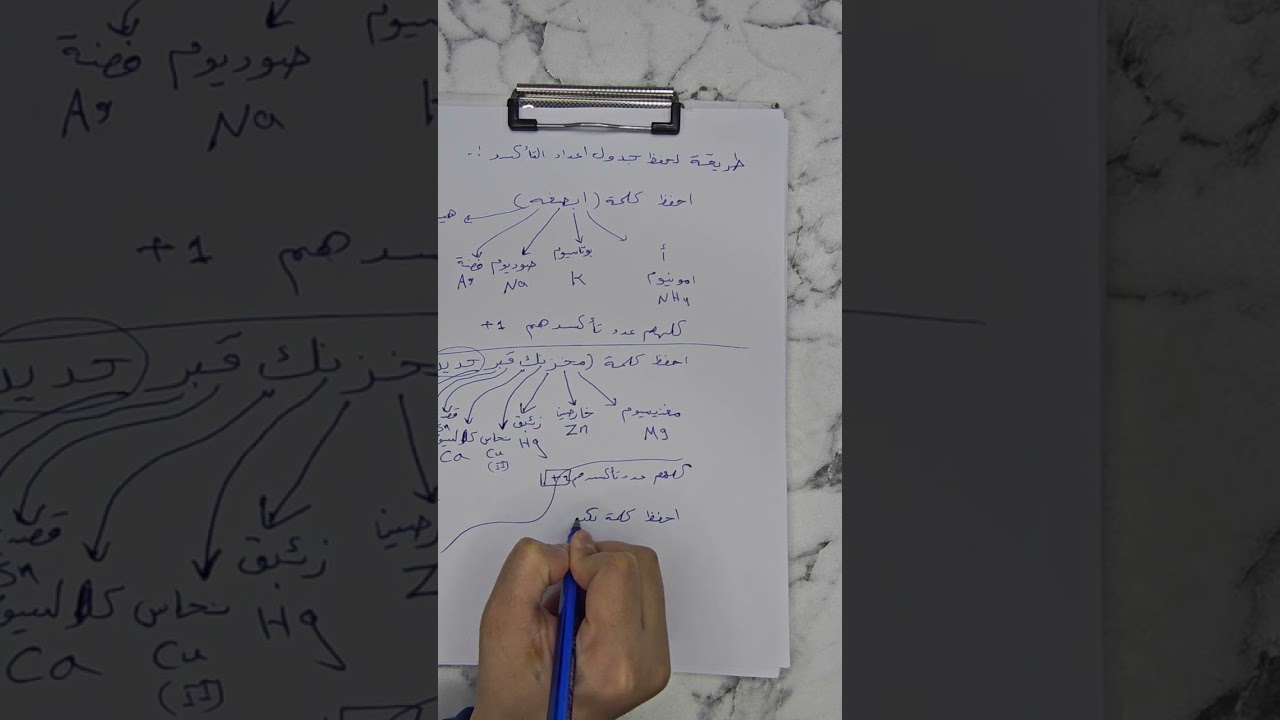 طريقة لحفظ جدول اعداد التأكسد :.
احفظ كلمة (ابصفه)
أ بوتاسيوم صوديوم فضة
امونيوم K Na Ag
NH4
كلهم عدد تأكسدهم +1
احفظ كلمة (مخزنك قبر حديد
مغنيسيوم خارصين زئبق نحاس كالسيوم
Mg Zn Hg Cu Ca Sn
(II)
كلهم عدد تأكسدهم
احفظ كلمة